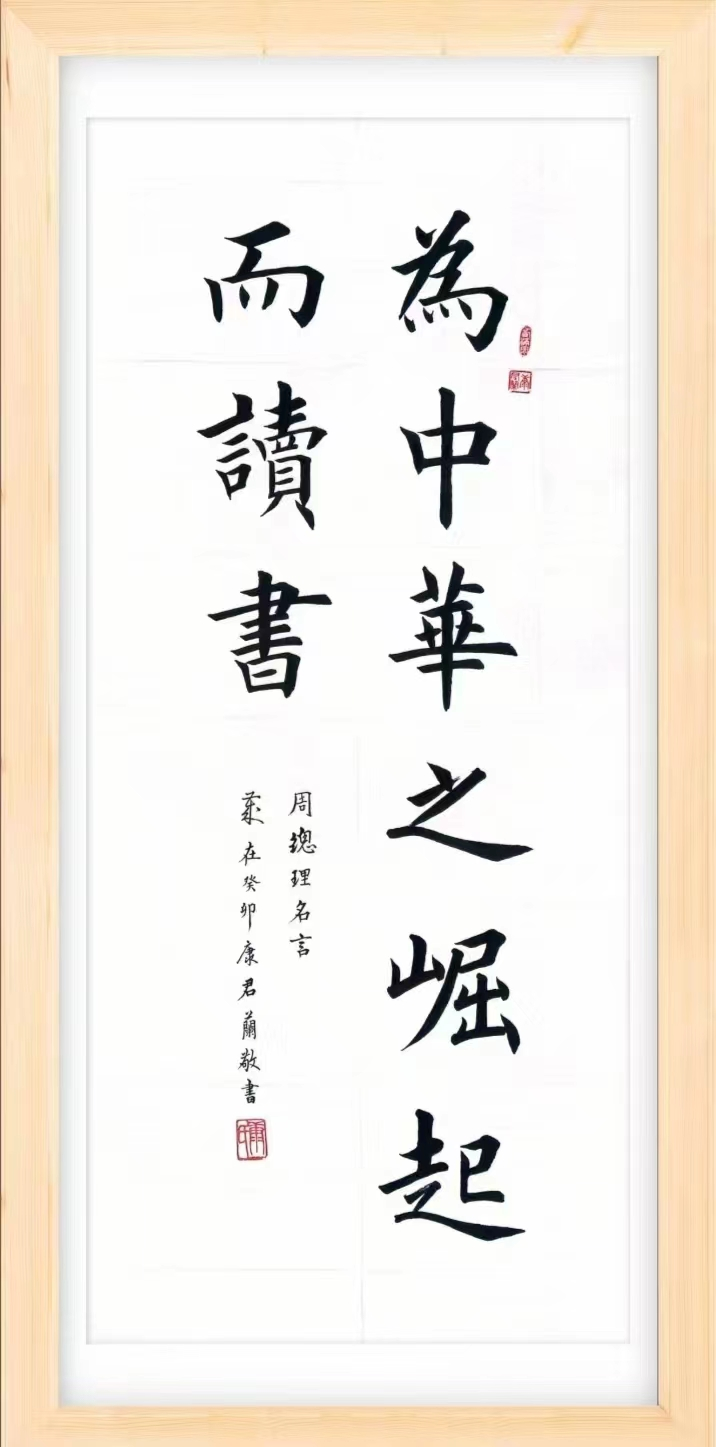 為中華之崛起
而讀書
周總理名言
歲在癸卯康君蘭敬書